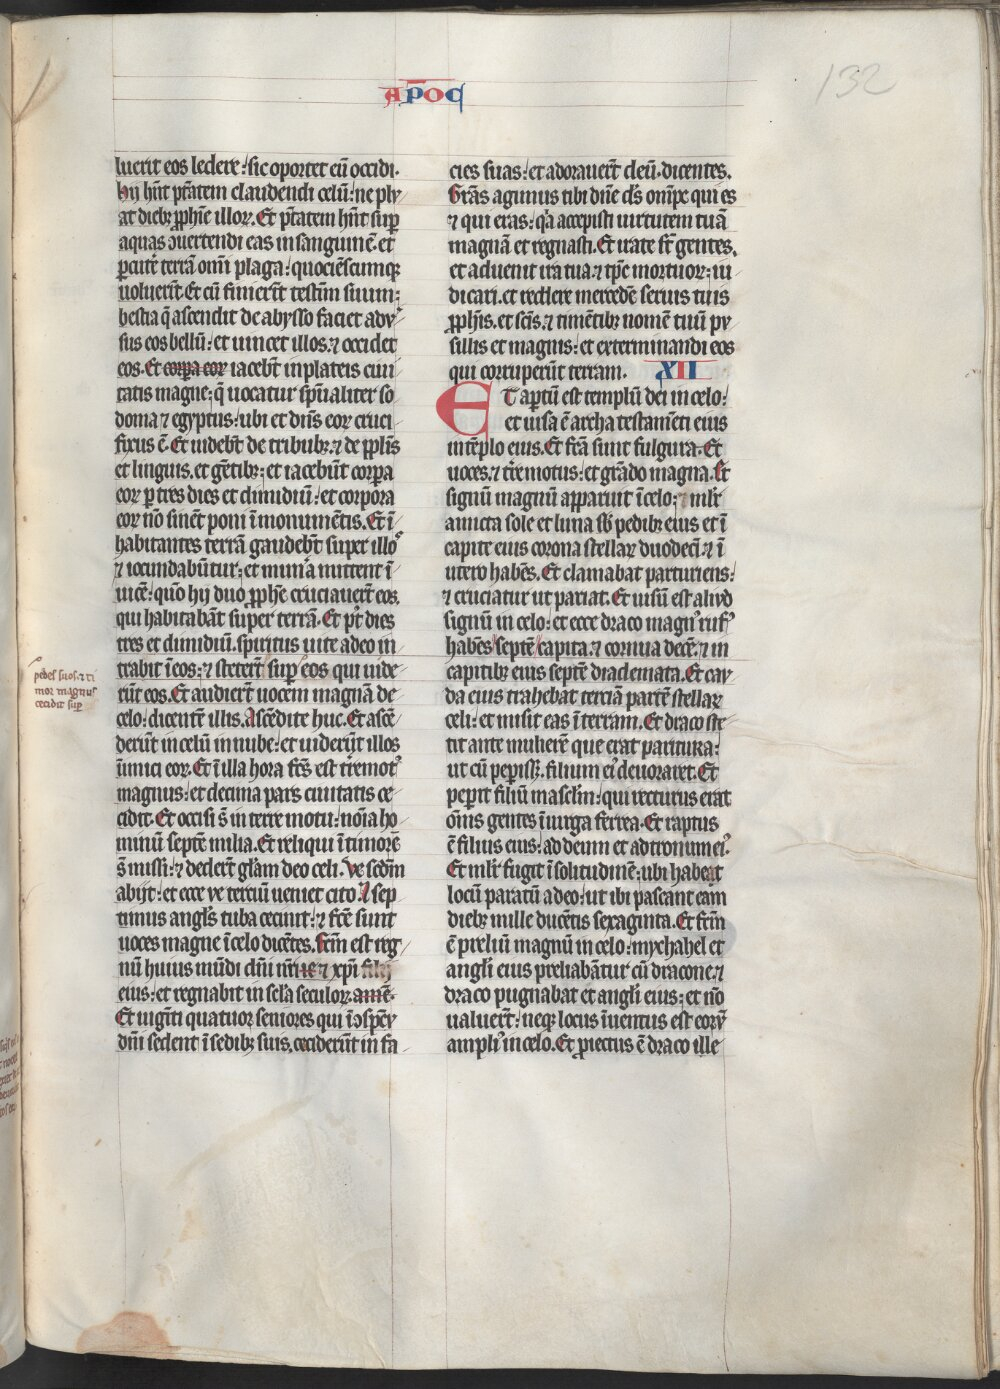 APOC
132
luerit eos ledere: sic oportet eū occidi.
hij hn̄t ptātem claudendi celū: ne plu
at dieb; ꝓphīe illoꝝ. Et ptātem hn̄t suꝑ
aquas ɔuertendi eas insanguinē. et
ꝑcutē terrā omī plaga: quociēscumqꝫ
uoluerīt. Et cū finierīt testīm suum:
bestia q̄ ascendit de abysso faciet adv
sus eos bellū: et uincet illos. ⁊ occidet
eos. Et corpa eoꝝ iacebt̄ inplateis ciui
tatis magne: q̄ uocatur spūaliter so
doma ⁊ egyptus: ubi et dn̄s eoꝝ cruci
fixus ē. Et uidebt̄ de tribubꝫ. ⁊ de pplīs
et linguis. et gētibꝫ: et iacebūt corꝑa
eoꝝ ꝑ tres dies et dimidiū: et corpora
eoꝝ nō sinēt poni ī monumētis. Et ī
habitantes terrā gaudebt̄ super illos
⁊ iocundabūtur: et mun̄a mittent ī
uicē: quō hij duo ꝓphe cruciauerīt eos.
qui habitabāt super terrā. Et pt̄ dies
tres et dimidiū. spiritus uite adeo in
trabit ī eos: ⁊ steterīt suꝑ eos qui uide
rūt eos. Et audierīt uocem magnā de
celo: dicentē illis. Ascēdite huc. Et ascē
derūt in celū in nube: et uiderūt illos
inimici eoꝝ. Et ī illa hora fcs̄ est tremot᾿
magnus: et decima pars ciuitatis ce
cidit. Et occisi s̄ in terre motu: noīa ho
minū septē milia. Et reliqui ī timorē
s̄ missi: ⁊ dederīt glām deo celi. Ve scdm̄
abijt: et ecce ve terciū ueniet cito. ⁊ sep
timus angls̄ tuba cecinit: ⁊ fcē sunt
uoces magne ī celo dicētes. fcm̄ est reg
nū huius mūdi dn̄i nr̄i ⁊ xp̄i
eius: et regnabit in scl̄a seculoꝝ. amē.
Et uigīti quatuor seniores qui ī ɔspēv
dn̄i sedent ī sedibꝫ suis. ceciderūt in fa
pedes suos. ⁊ ti
mor magnus
cecidit suꝑ
cies suas: et adorauerīt deū. dicentes.
Grās agimus tibi dn̄e ds̄ om̄pc qui es
⁊ qui eras: qa accepisti uirtutem tuā
magnā et regnasti. Et irate st̄ gentes.
et aduenit ira tua. ⁊ tp̄c mortuoꝝ: iu
dicari. et reddere mercedē seruis tuis
ꝓphīs. et scīs. ⁊ timētibꝫ nomē tuū pv
sillis et magnis: et exterminandi eos
qui corruperūt terram. XII
ET aꝑtū est templū dei in celo:
et uisa ē archa testamēti eius
in tēplo eius. Et fcā sunt fulgura. Et
uoces. ⁊ t̄re motus: et grādo magna. Et
signū magnū apparuit ī celo: mlr̄
amicta sole et luna sb̄ pedibꝫ eius et ī
capite eius corona stellaꝝ duodecī. ⁊ ī
utero habēs. Et clamabat parturiens:
⁊ cruciatur ut pariat. Et uisū est aliud
signū in celo: et ecce draco magn᾿ ruf᾿
habēs septē capita. ⁊ cornua decē. ⁊ in
capitibꝫ eius septē diademata. Et cav
da eius trahebat terciā partē stellaꝝ
celi: et misit eas ī terram. Et draco ste
tit ante mulierē que erat paritura:
ut cū peꝑiss;. filium ei᾿ deuoraret. Et
peꝑit filiū masclm̄: qui recturus erat
ōnis gentes ī uirga ferrea. Et raptus
ē filius eius: ad deum et ad tronum ei᾿.
Et mlr̄ fugit ī solitudinē: ubi habeat
locū paratū adeo: ut ibi pascant eam
diebꝫ mille ducētis sexaginta. Et fcm̄
ē preliū magnū in celo: mychahel et
angli eius preliabātur cū dracone. ⁊
draco pugnabat et angli eius: et nō
ualuert̄: neqꝫ locus īuentus est eorv
ampli᾿ in celo. Et ꝓiectus ē draco ille